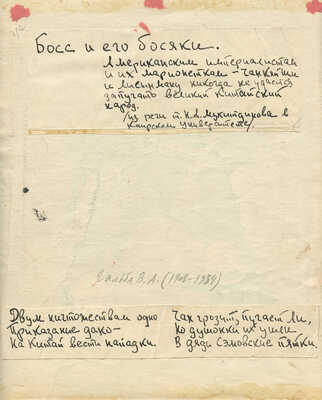 Босс и его босяки.
Американским империалистам
и их марионеткам – чанкайши
и лисынману никогда не удастся
запугать великий китайский
народ.
/из речи т. Н.А. Мухитдинова в
Каирском университете/
Гальба В.А. (1908-1984)
Двум ничтожествам одно
Приказание дано –
На Китай вести нападки.
Чан грозит, пугает Ли,
Но душонки их ушли
В дяди Сэмовские пятки.